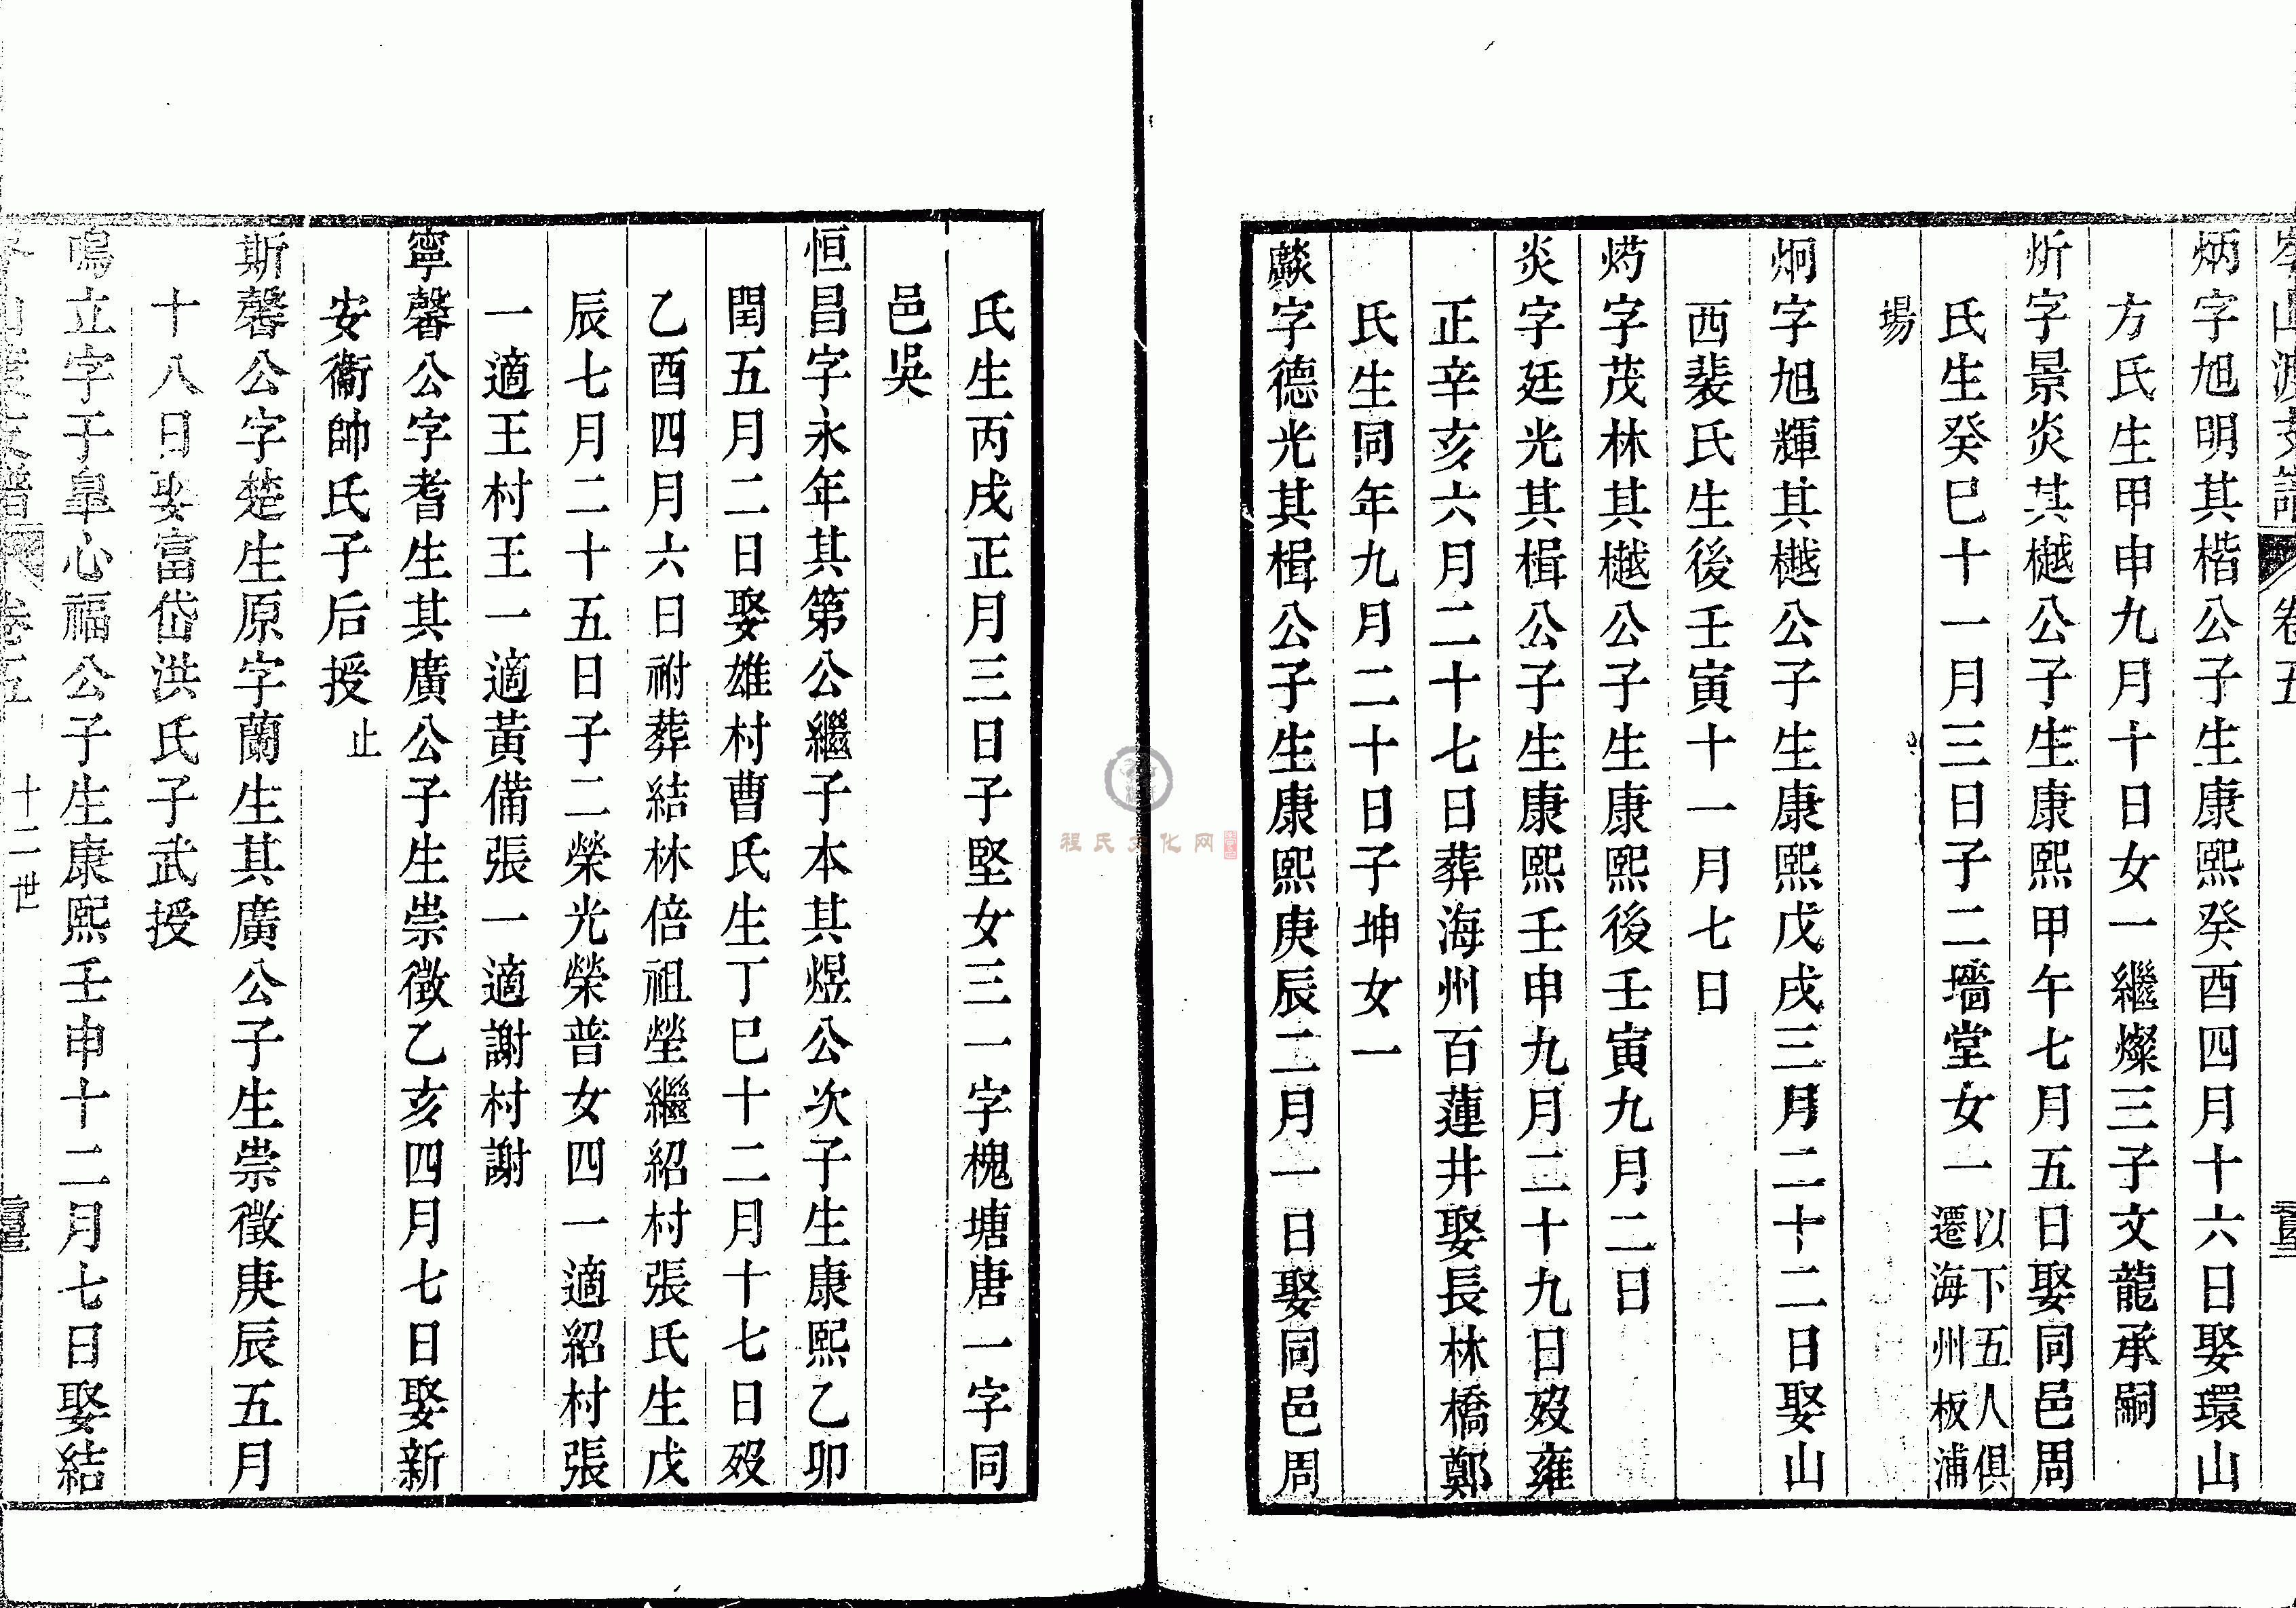 岑山渡支譜 卷五
炳字旭明其楷公子生康熙癸酉四月十六日娶環山
方氏生甲申九月十日女一繼燦三子文龍承嗣
炘字景炎其樾公子生康熙甲午七月五日娶同邑周
氏生癸巳十一月三日子二墻堂女一以下五人俱
遷海州板浦
場
炯字旭輝其樾公子生康熙戊戌三月二十二日娶山
西裴氏生後壬寅十一月七日
茂林其樾公子生康熙後壬寅九月二日
炎字廷光其楫公子生康熙壬申九月二十九日歿雍
正辛亥六月二十七日葬海州百蓮井娶長林橋鄭
氏生同年九月二十日子坤女一
字德光其楫公子生康熙庚辰二月一日娶同邑周
氏生丙戌正月三日子堅女三一字槐塘唐一字同
邑吳
恒昌字永年其第公繼子本其煜公次子生康熙乙卯
閏五月二日娶雄村曹氏生丁巳十二月十七日歿
乙酉四月六日祔葬結林倍祖塋繼紹村張氏生戊
辰七月二十五日子二榮光榮普女四一適紹村張
一適王村王一適黃備張一適謝村謝
寧馨公字耆生其廣公子生崇徵乙亥四月七日娶新
安衞帥氏子后授止
斯馨公字楚生原字蘭生其廣公子生崇徵庚辰五月
十八日娶富岱洪氏子武授
鳴立字于臯心福公子生康熙壬申十二月七日娶結
岑山渡支譜 卷五 十二世
程氏文化网